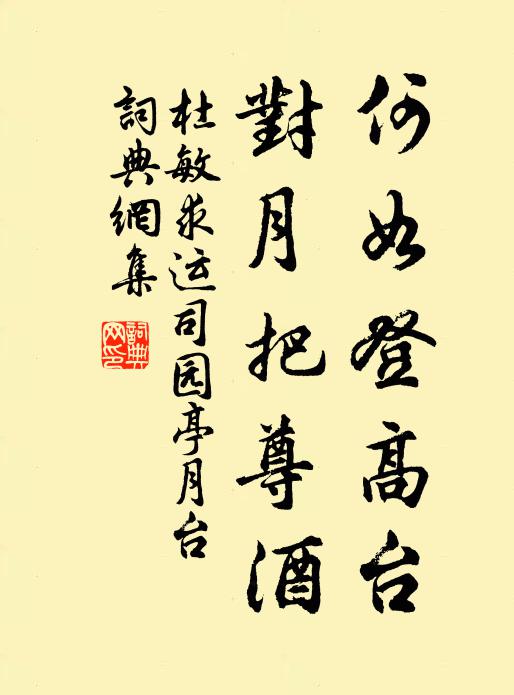 何如登高台
對月把尊酒
杜敏求运司园亭月台
詞典網集
詞典网印